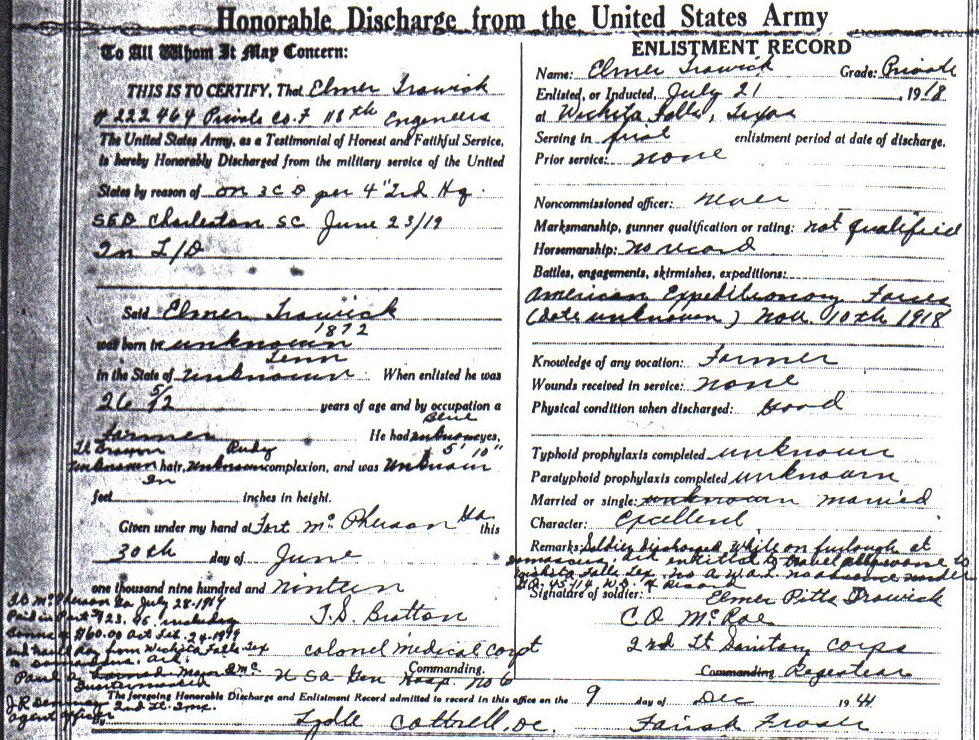 Honorable Discharge from the United States Army
To All Whom It May Concern:
THIS IS TO CERTIFY, That Elmer Trowick
# 222464 Private Co. F 118th Engineers
The United States Army, as a Testimonial of Honest and Faithful Service,
is hereby Honorably Discharged from the military service of the United
States by reason of on 3 C O per 4" 2nd Hq.
SED Charleston SC June 23/19
In L/D
Said Elmer Trowick
1872
was born in unknown
Tenn
in the State of unknown When enlisted he was
26 5/12 years of age and by occupation a
Blue
farmer He had unknown eyes,
Lt Brown Rudy 5' 10"
unknown hair, unknown complexion, and was unknown
feet inches in height.
Given under my hand at Fort McPherson Ga this
30th day of June
one thousand nine hundred and nineteen
T.S. Bratton
colonel medical corpt
Commanding.
U S A Gen Hosp. No 6
Ft McPherson Ga July 28-1919
Paid in Part $23.96. including
bonus of $60.00 Act Feb. 24-1919
and travel pay from Wichita Falls Tex
to Ark.
Paul
Quartermaster
J.R.
agent officer 2nd Lt. Inf.
ENLISTMENT RECORD
Name: Elmer Trowick Grade: Private
Enlisted, or Inducted, July 21, 1918
at Wichita Falls, Texas
Serving in first enlistment period at date of discharge.
Prior service: none
Noncommissioned officer: never
Marksmanship, gunner qualification or rating: not qualified
Horsemanship: no record
Battles, engagements, skirmishes, expeditions:
American Expeditionary Forces
(date unknown) Nov. 10th 1918
Knowledge of any vocation: Farmer
Wounds received in service: none
Physical condition when discharged: Good
Typhoid prophylaxis completed unknown
Paratyphoid prophylaxis completed unknown
Married or single: unknown married
Character: Excellent
Remarks: Soldier discharged while on furlough at
entitled to travel allowance to
Wichita Falls Tex. No A.W.O.L. no absence under
G.O. 45/14 W.D.
Signature of soldier: Elmer Pitts Trowick
C.O. McRae
2nd Lt Sanitary Corps
Commanding Registear
The foregoing Honorable Discharge and Enlistment Record admitted to record in this office on the 9 day of Dec 1944
By Lydle Cottrell, DC. Farish Fraser